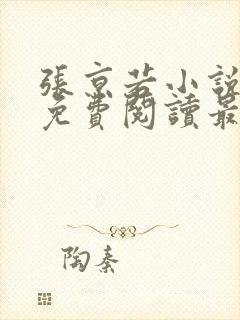 張京若小說
免費閱讀最
陶秦